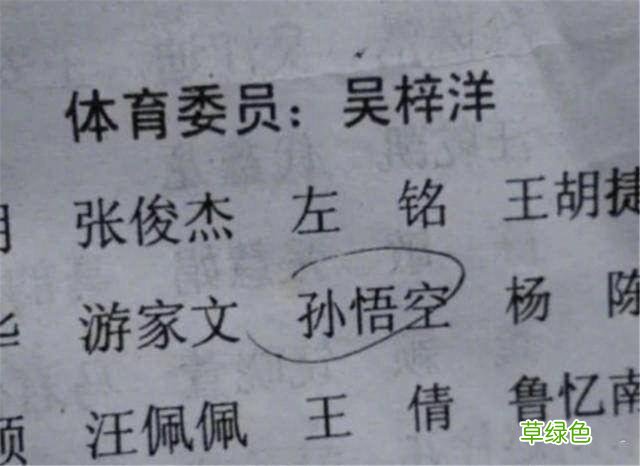 体育委员：吴梓洋
张俊杰 左 铭 王胡捷
游家文 孙悟空 杨 陈
汪佩佩 王 倩 鲁忆南
草绿色